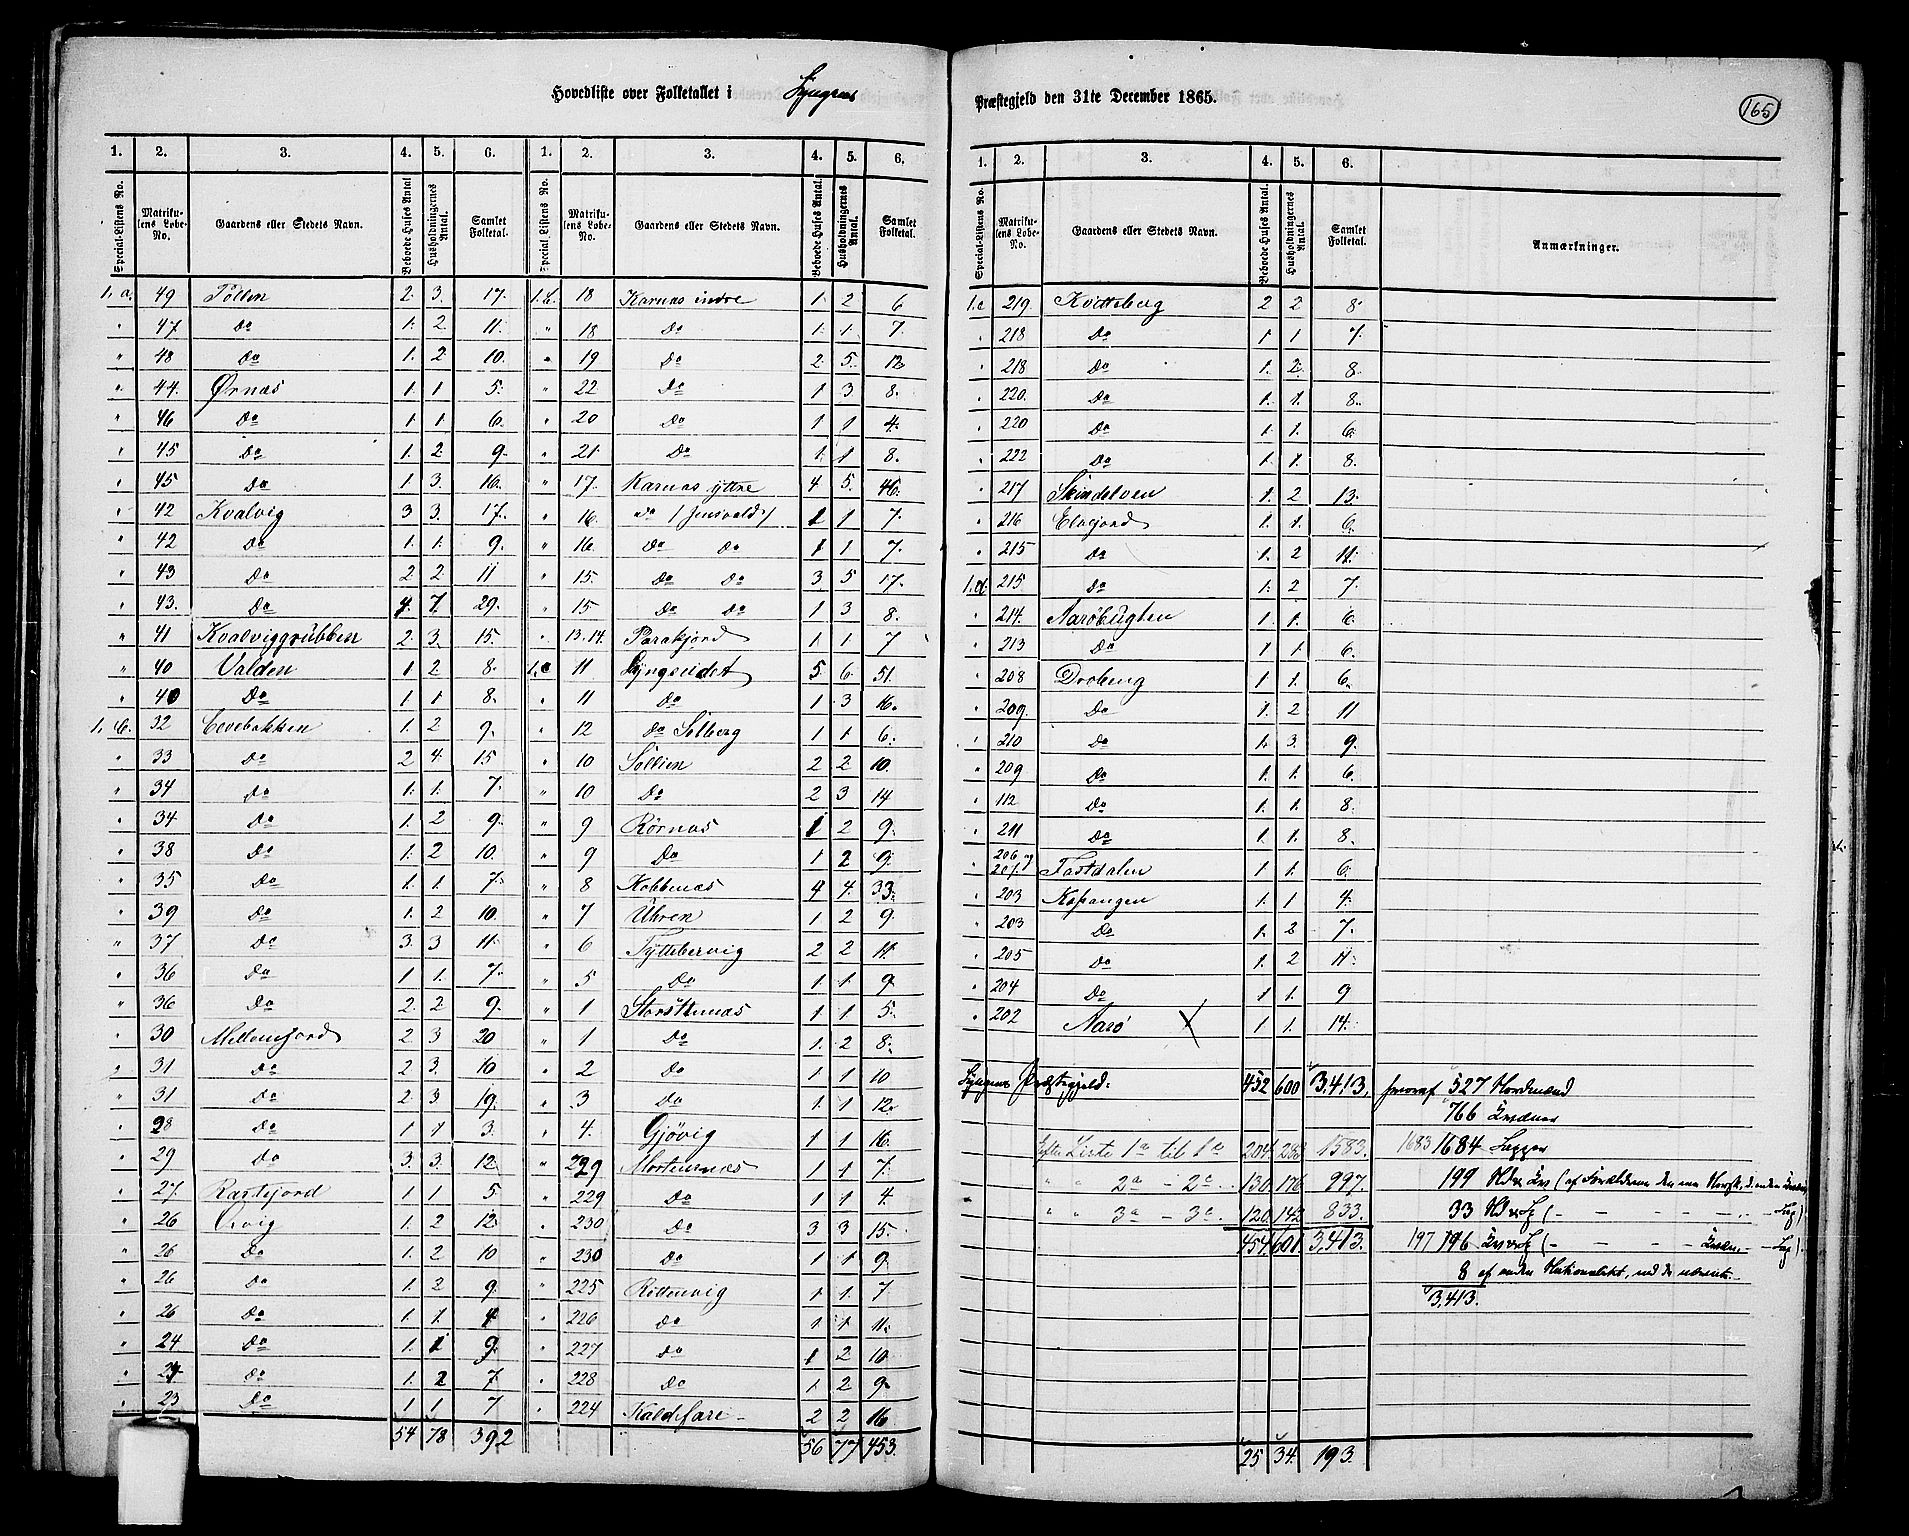 Hovedliste over Folketallet i Lyngens
Præstegjeld den 31te December 1865.
165
1. 2. 3. 4. 5. 6. 1. 2. 3. 4. 5. 6.
Special-Listens No. Matrikulens Lobe-No. Gaardens eller Stedets Navn. Beboede Huses Antal. Husholdningernes Antal. Samlet Folketal. Special-Listens No. Matrikulens Lobe-No. Gaardens eller Stedets Navn. Beboede Huses Antal. Husholdningernes Antal. Samlet Folketal.
1. a. 49 Pollen 2. 3. 17.
" 47 Do 1. 2 11.
" 48 Do 1. 2. 10.
" 44. Ørnæs 1. 1 5.
" 46 Do 1 1 6.
" 45 Do 1. 2 9.
" 45 Do 1. 3. 16.
" 42 Kvalvig 3 3. 17.
" 42 Do 1. 1. 9.
" 43 Do 2 2 11
" 43. Do 4. 7. 29.
" 41 Kvalviggrubben 2. 3. 15.
" 40 Valden 1. 2 8.
" 40 Do 1 1 8.
1. 32 1. 2 9.
" 33 Do 2 4. 15
" 34 Do 1. 1. 7.
" 34 Do 1. 2 9.
" 38 Do 1. 2 10.
" 35 Do 1. 1. 7.
" 39 Do 1. 2 10.
" 37 Do 3. 3 11.
" 36 Do 1 1. 7.
" 36 Do 2. 2. 9.
" 30 2 3 20
" 31 Do 2 3. 16
" 31 Do 2. 3 19.
" 28 Do 1 1 3.
" 29 Do 3. 3. 12.
" 27. Rastefjord 1 1 5
" 26 1. 2 12.
" 26 Do 1. 2 10
" 26 Do 1. 2 9.
" 26 Do 1. 1. 4.
" 24 Do 1. 1 9.
" 24 Do 1. 2 7.
" 23 Do 1 1 7
54 78 392
18 Karnæs indre 1. 2 6
" 18 Do 1. 1. 7.
" 19 Do 2. 5. 12
" 22 Do 1 3. 8.
" 20 Do 1 1 4.
" 21. Do 1. 1 8.
" 17. Karnæs ÿttre 4 5. 46.
" 16. Do / Jensvold / 1 1 7.
" 16. Do Do 1 1 7.
" 15. Do Do 3 5 17.
" 15 Do Do 1 3 8.
" 13.14. 1 1 7
1.c 11 Lyngseidet 5 6. 51.
" 11 Do 1. 3 16.
" 12 Do Solberg 1 1 6.
" 10 Sollien 2 2 10.
" 10 Do 2 3 14
" 9 Rørnæs 1 2 9.
" 9 Do 1 2 9.
" 8 Kobbenæs 4 4. 33.
" 7 Uhren 1 2 9.
" 6 Tyttebervig 2 2 11.
" 5 Do 1. 1 9.
" 1 1 1 5.
" 1 Do 1. 2 8.
" 2 Do 1 1 10
" 3 Do 1. 1 12.
" 4. Gjøvig 1 1 16.
" 229 Mortensnæs 1 1 7.
229 Do 1 1 4.
" 230 Do 3 3 15.
" 230 Do 1 1 9.
225 Rottenvig 1 1. 7
226 Do 1 1 11.
227 Do 1 2 10
228 Do 1 2 9.
224 Kaldefare - 2 2 16
56 77 453.
1. 2. 3. 4. 5. 6.
Special-Listens No. Matrikulens Lobe-No. Gaardens eller Stedets Navn. Beboede Huses Antal. Husholdningernes Antal. Samlet Folketal. Anmærkninger.
1.c 219. Kvitteberg 2 2 8.
" 218 Do 1 1 7.
" 218 Do 1. 2. 8
" 220. Do 1. 1. 8.
" 220 Do 1 1. 6.
" 222 Do 1. 1. 8.
" 217 Skindelven 1. 2 13.
" 216 Elvejord 1. 1. 6.
" 215 Do 1. 2 11.
1.d. 215 Do 1. 2 7.
" 214. Aarøbugten 1. 1. 6.
" 213 Do 1 1. 6.
" 208 Droberg 1 1. 6.
" 209. Do 1. 2 11
" 210 Do 1. 3. 9.
" 209 Do 1. 1. 6
" 112 Do 1. 1. 8.
" 211 Do 1. 1. 8.
" 206 og 207. Fastdalen 1 1. 6.
" 203 Kopangen 1. 1 4.
" 203 Do 1. 2 7.
" 205 Do 1. 2 11.
" 204 Do 1 1. 9
" 202 Aarø 1 1. 14.
Lyngens Præstegjeld: 452 600 3,413. hvoraf 527 Nordmænd
766 Kvæner
Efter Liste 1a til 1d 204 283 1583. 1683 1684 Lapper
" " 2a - 2c 130. 176 997. 199
" " 3a - 3c 120. 142 833. 33
454 601 3,413. 197 196
8 af anden Nationalitet, end de nævnte.
3,413.
25 34. 193.